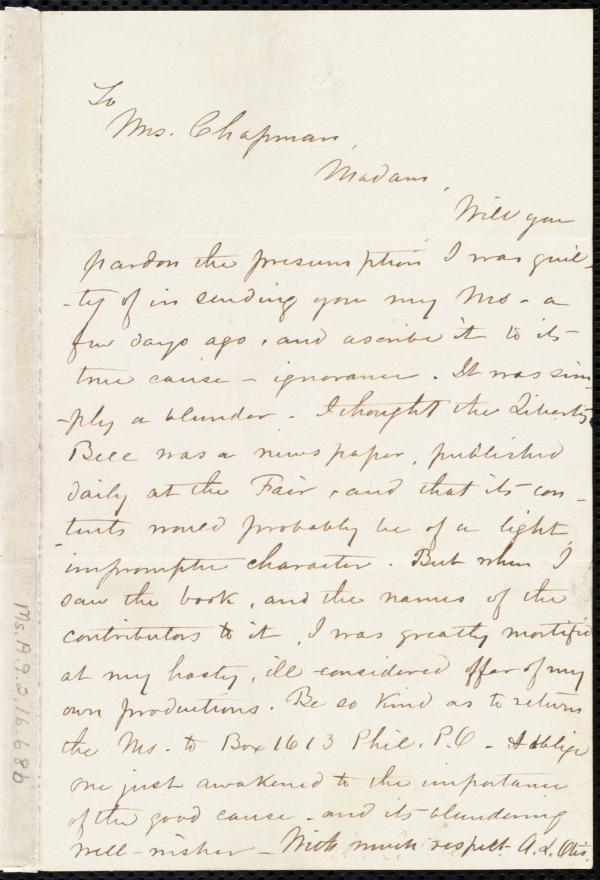 To
Mrs. Chapman,
Madam,
Will you
pardon the presumption I was guil-
-ty of in sending you my Ms. a
few days ago, and ascribe it to its
true cause - ignorance. It was sim-
-ply a blunder. I thought the Liberty
Bell was a newspaper, published
daily at the Fair, and that its con-
tents would probably be of a light,
impromptu character. But when I
saw the book, and the names of the
contributors to it, I was greatly mortified
at my hasty, ill-considered offer of my
own productions. Be so kind as to return
the Ms. to Box 1613 Phil. P.O. & oblige
one just awakened to the importance
of the good cause - and its blundering
well-wisher - With much respect. A. L. Otis.
Ms.A.9.2.16.686